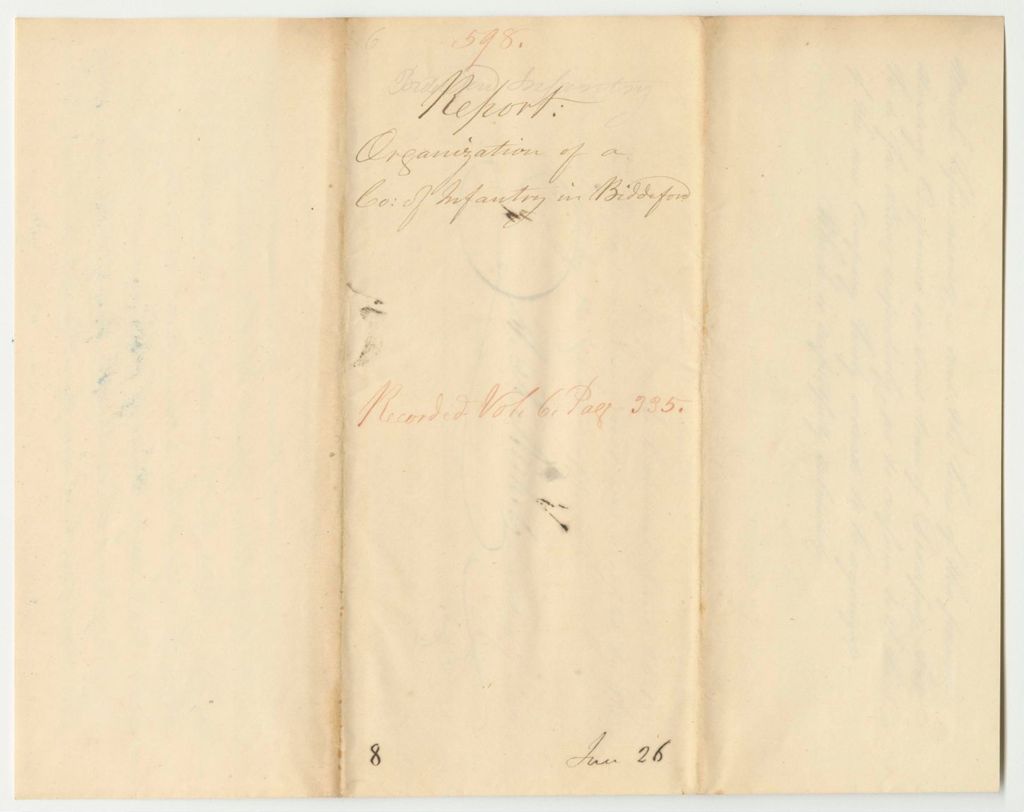 6 598.
Biddeford Infantry
Report:
Organization of a
Co: of Infantry in Biddeford
Recorded Vol. 6. Page 335.
8 Jun 26